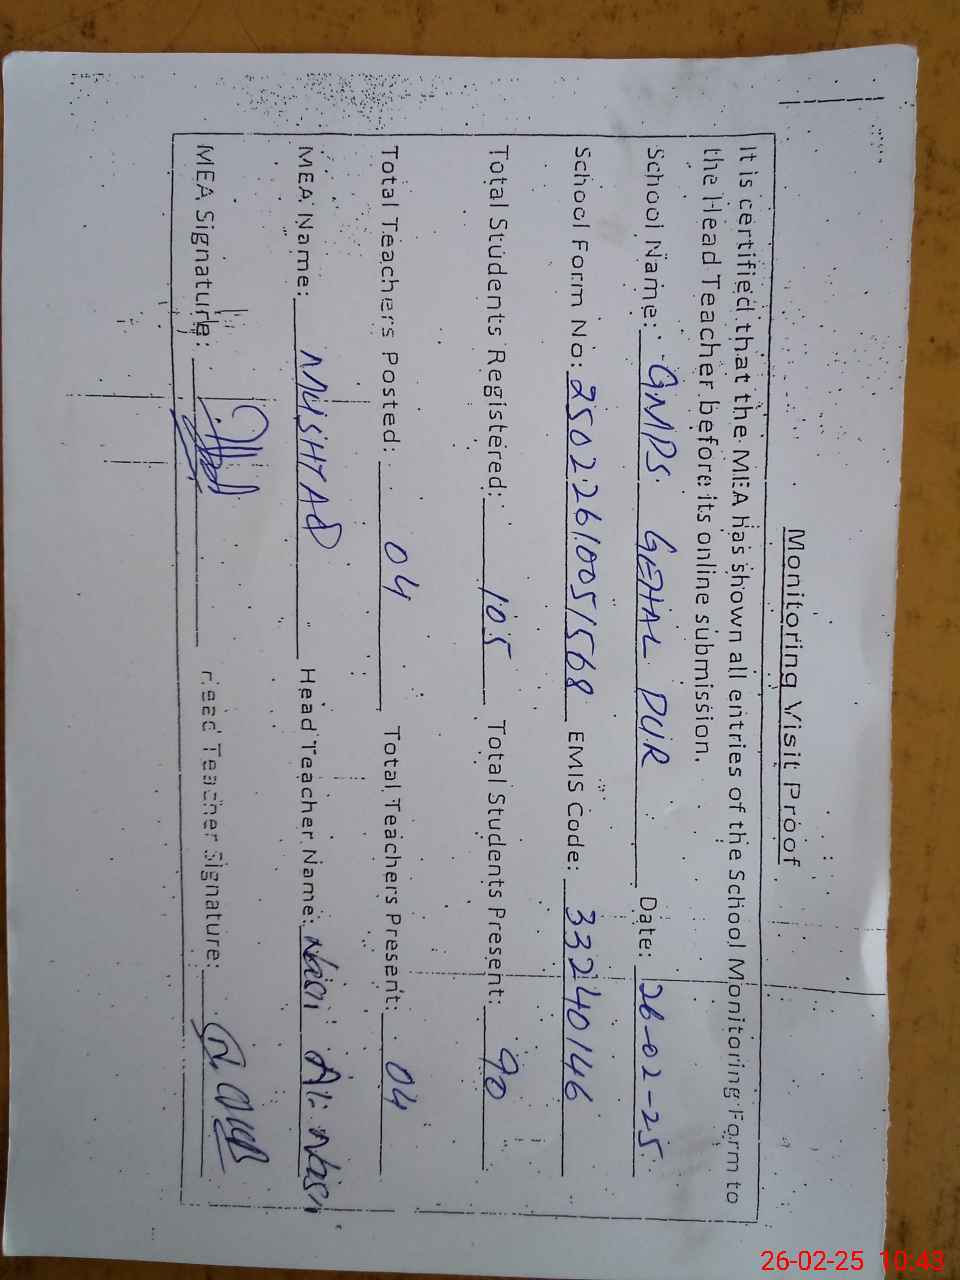 Monitoring Visit Proof
It is certified that the MEA has shown all entries of the School Monitoring Form to
the Head Teacher before its online submission.
School Name: GMPS GEHAL PUR Date: 26-02-25
School Form No: 25022610051568 EMIS Code: 33240146
Total Students Registered: 105 Total Students Present: 90
Total Teachers Posted: 04 Total Teachers Present: 04
MEA Name: MUSHTAQ Head Teacher Name: Ali
MEA Signature: Head Teacher Signature:
26-02-25 10:43